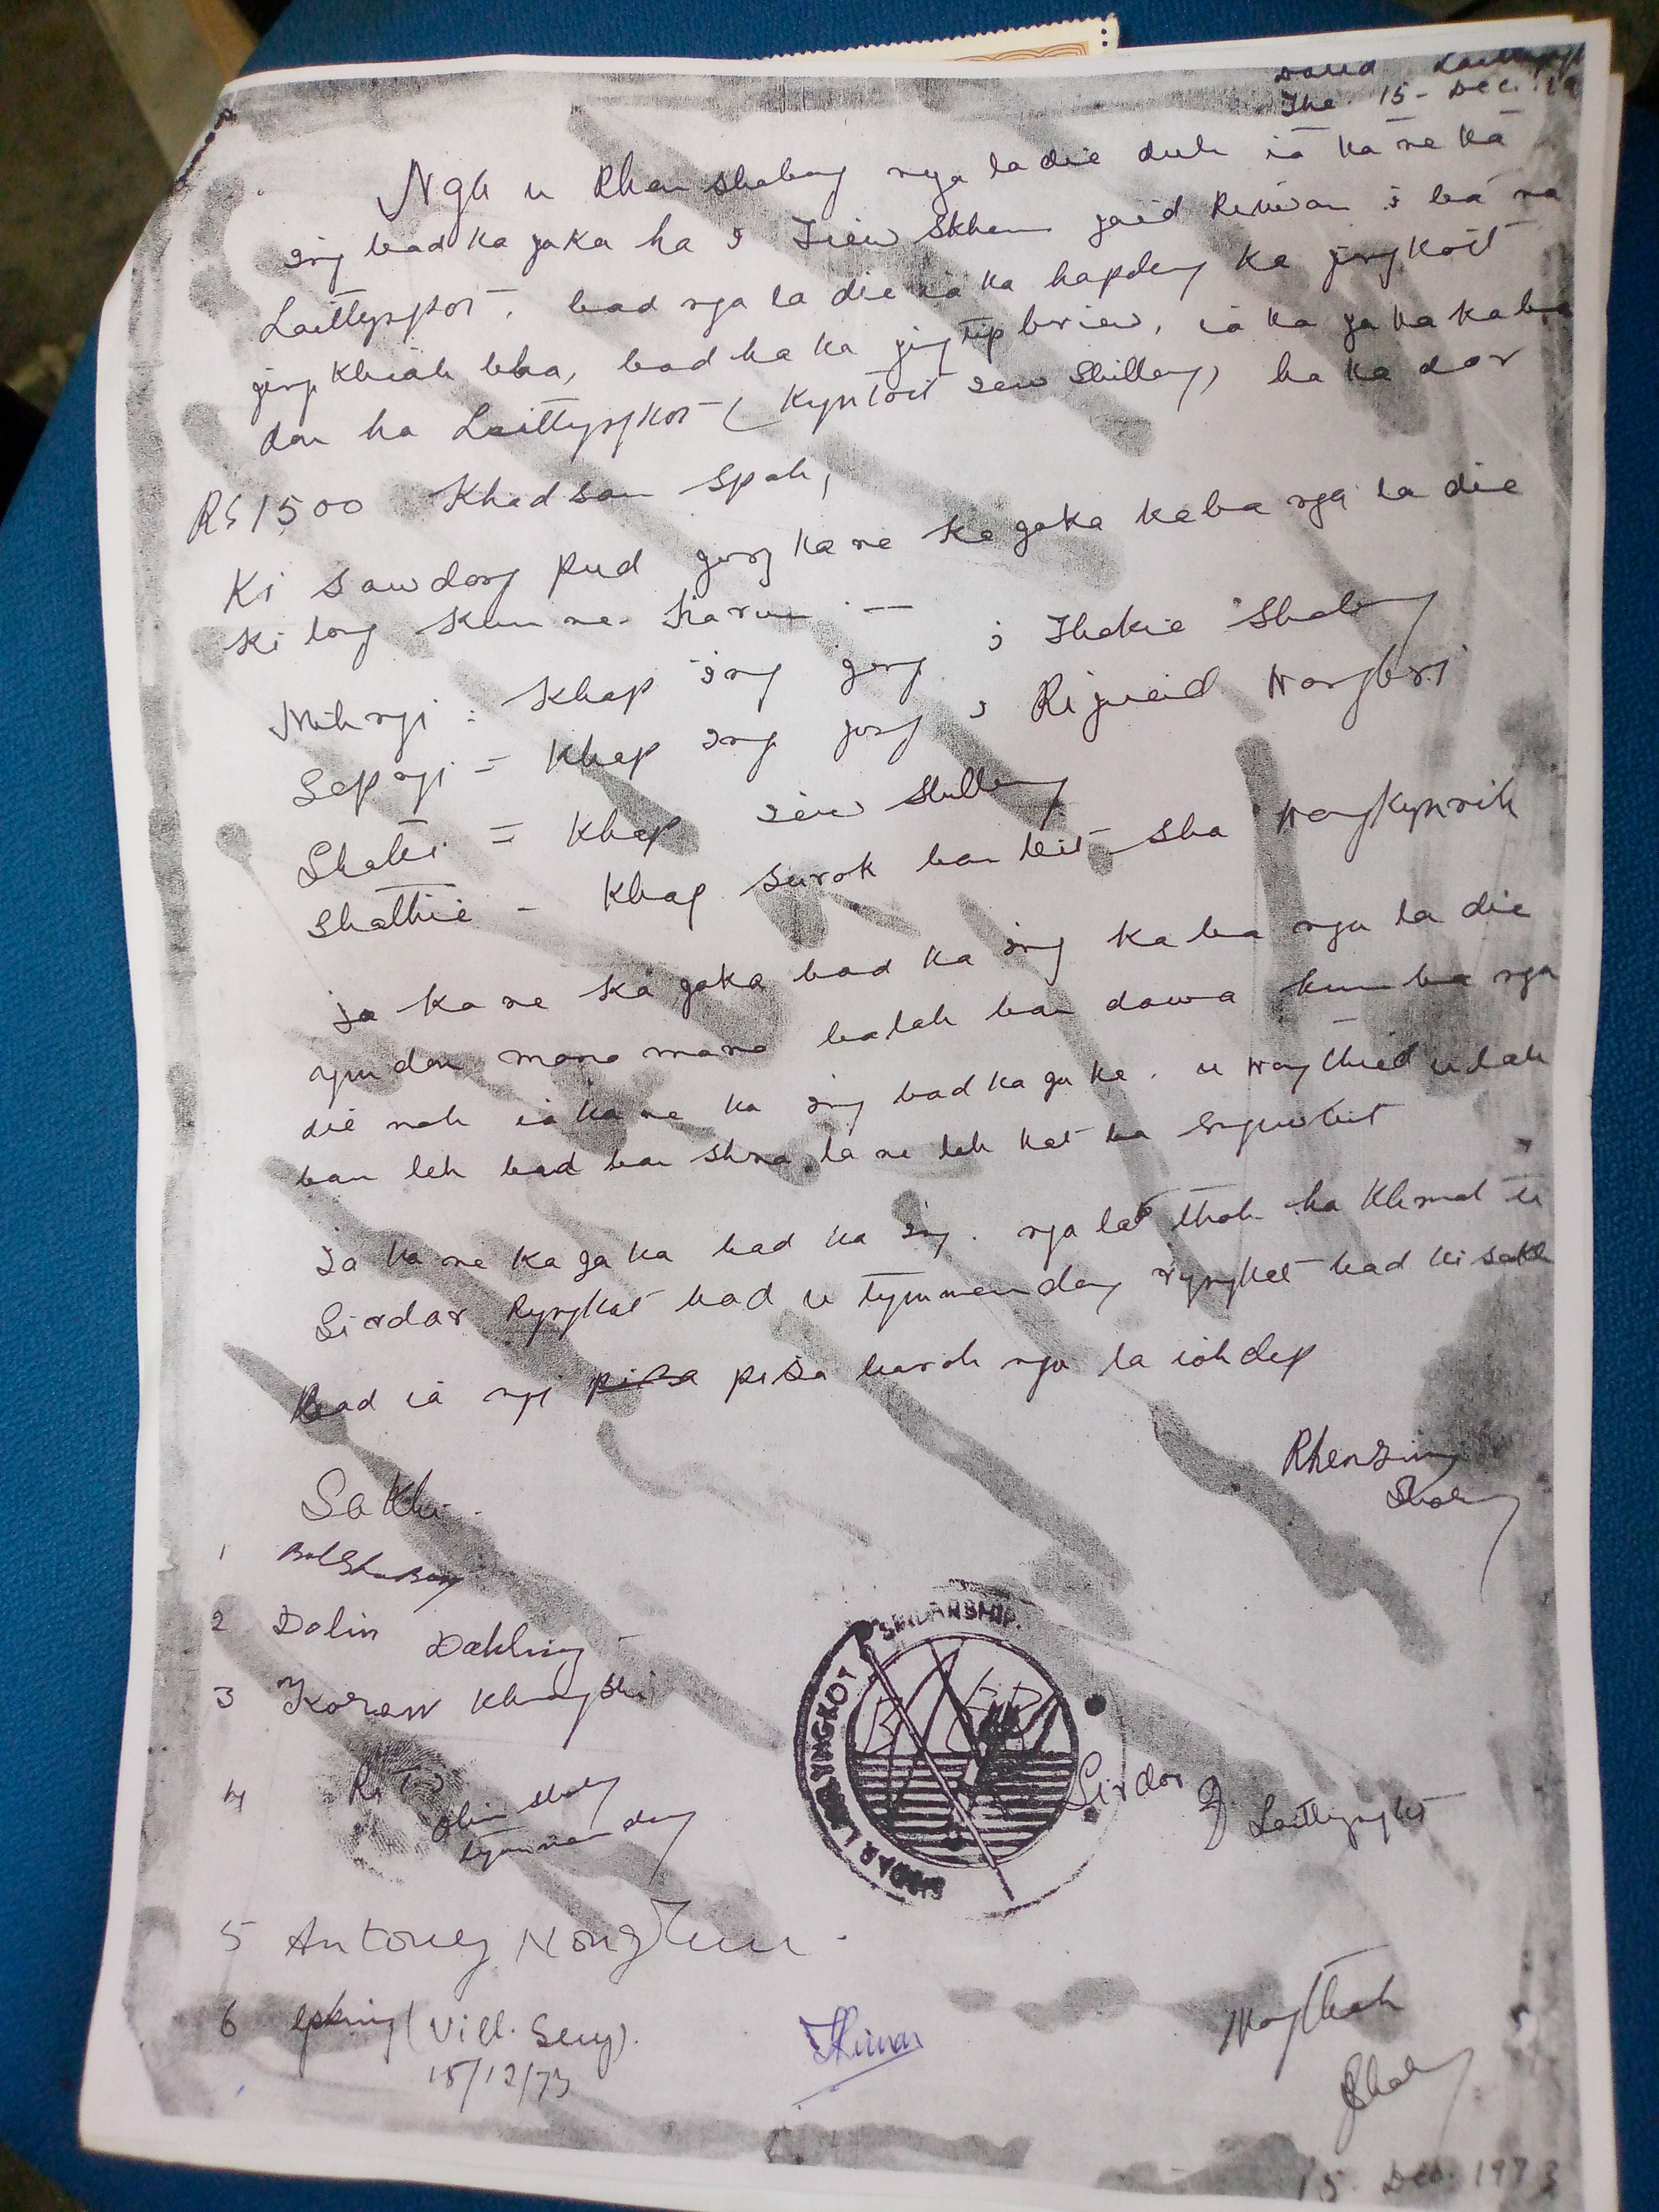 Dated Laittyngkot
The 15 - Dec. 19
Nga u Rhen Shabong nga la die duh ia kane ka
ing bad ka jaka ha i Iiew Skhem jaid Rimuan i ba na
Laittyngkot, bad nga la die ia ka hapdeng ka jingkoit
jingkhiah bha, bad ha ka jingtip briew, ia ka jaka kaba
don ha Laittyngkot (Kyntoit iew Shillong) ha ka dor
Rs 1500 Khadsan Spah,
Ki sawdong pud jong kane ka jaka kaba nga la die
ki long kumne harum :—
Mihngi : Khap ing jong i Thokie Shabong
Sepngi = Khap ing jong i Rijueid Nongbri
Shathi = Khap iew Shillong
Shathie - Khap surok ban leit sha Nongkynrih
Ia kane ka jaka bad ka ing kaba nga la die
ym don mano mano ba lah ban dawa kumba nga
die noh ia kane ka ing bad ka jaka. u Nongthied u lah
ban leh bad ban shna lane leh kat ba sngewbit
Ia kane ka jaka bad ka ing. nga la thoh ha khmat u
Sirdar Ryngkat bad u tymmen dong ryngkat bad ki sakhi
Bad ia ngi pisa pisa baroh nga la ioh dep
Rhensing
Shabong
Sakhi -
1 Shabong
2 Dolin Dohling
3 Koren Khongshi
4 R.T.I
Olin Shabong
tymmen dong
SIRDAR LAITLYNGKOT SIRDARSHIP
Sirdar
Laitlyngkot
5 Antoney Nongrum -
6 (Vill. Secy).
15/12/73
Nongthoh
Shabong
15. Dec. 1973